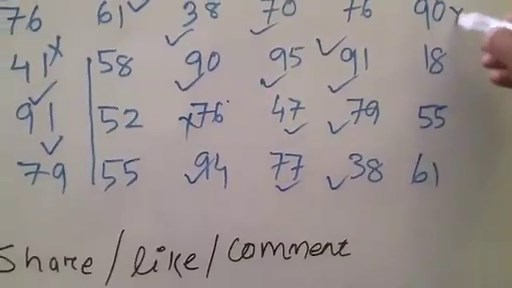 76 61 38 70 76 90
41 58 90 95 91 18
91 52 76 47 79 55
79 55 94 77 38 61
Share/like/comment